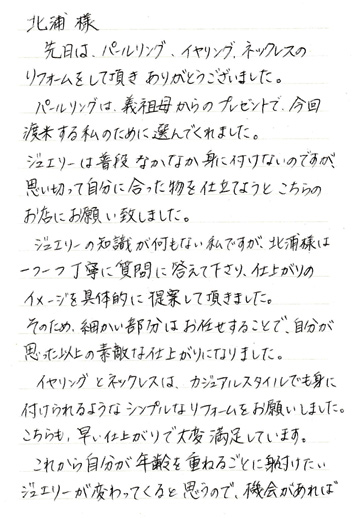 北浦様
先日は、パールリング、イヤリング、ネックレスの
リフォームをして頂きありがとうございました。
パールリングは、義祖母からのプレゼントで、今回
渡米する私のために選んでくれました。
ジュエリーは普段なかなか身に付けないのですが、
思い切って自分に合った物を仕立てようとこちらの
お店にお願い致しました。
ジュエリーの知識が何もない私ですが、北浦様は
一つ一つ丁寧に質問に答えて下さり、仕上がりの
イメージを具体的に提案して頂きました。
そのため、細かい部分はお任せすることで、自分が
思った以上の素敵な仕上がりになりました。
イヤリングとネックレスは、カジュアルスタイルでも身に
付けられるようなシンプルなリフォームをお願いしました。
こちらも、早い仕上がりで大変満足しています。
これから自分が年齢を重ねるごとに身付けたい
ジュエリーが変わってくると思うので、機会があれば